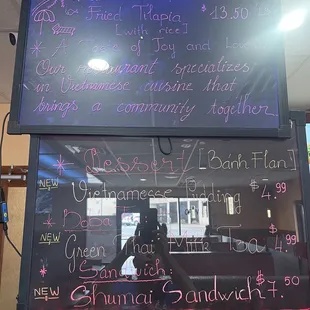 Fried Tilapia $13.50
[with rice]
of Joy and Love
Our restaurant specializes
in Vietnamese cuisine that
brings a community together
Dessert [Banh Flan]
NEW Vietnamesse Pudding $4.99
Boba
NEW Green Thai Milk Tea $4.99
Sandwich:
NEW Shumai Sandwich $7.50